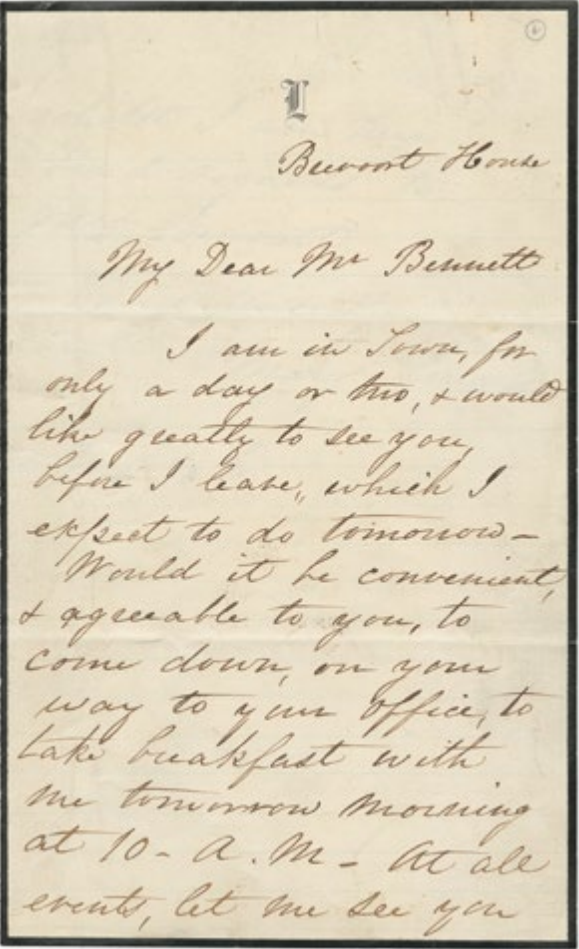 L
Brevoort House
My Dear Mr Bennett
I am in Town, for
only a day or two, & would
like greatly to see you,
before I leave, which I
expect to do tomorrow -
Would it be convenient,
& agreeable to you, to
come down, on your
way to your office, to
take breakfast with
me tomorrow morning
at 10 - A. M - At all
events, let me see you